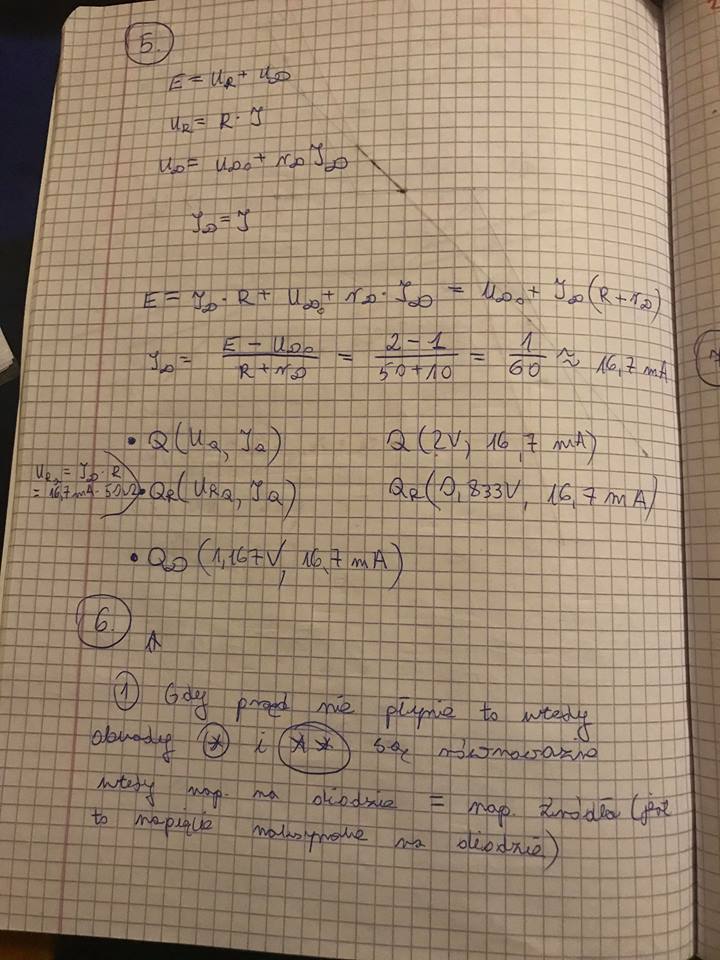 5.
E = U_R + U_D
U_R = R · I
U_D = U_D0 + r_D I_D
I_D = I
E = I_D · R + U_D0 + r_D · I_D = U_D0 + I_D (R + r_D)
I_D = (E - U_D0)/(R + r_D) = (2 - 1)/(50 + 10) = 1/60 ≈ 16,7 mA
• Q (U_Q, I_Q) Q (2V, 16,7 mA)
U_RQ = I_D · R
= 16,7 mA · 50Ω
• Q_R (U_RQ, I_Q) Q_R (0,833V, 16,7 mA)
• Q_D (1,167V, 16,7 mA)
6. A
1 Gdy prąd nie płynie to wtedy
obwody * i ** są równoważne
wtedy nap. na diodzie = nap. źródła (jest
to napięcie maksymalne na diodzie)